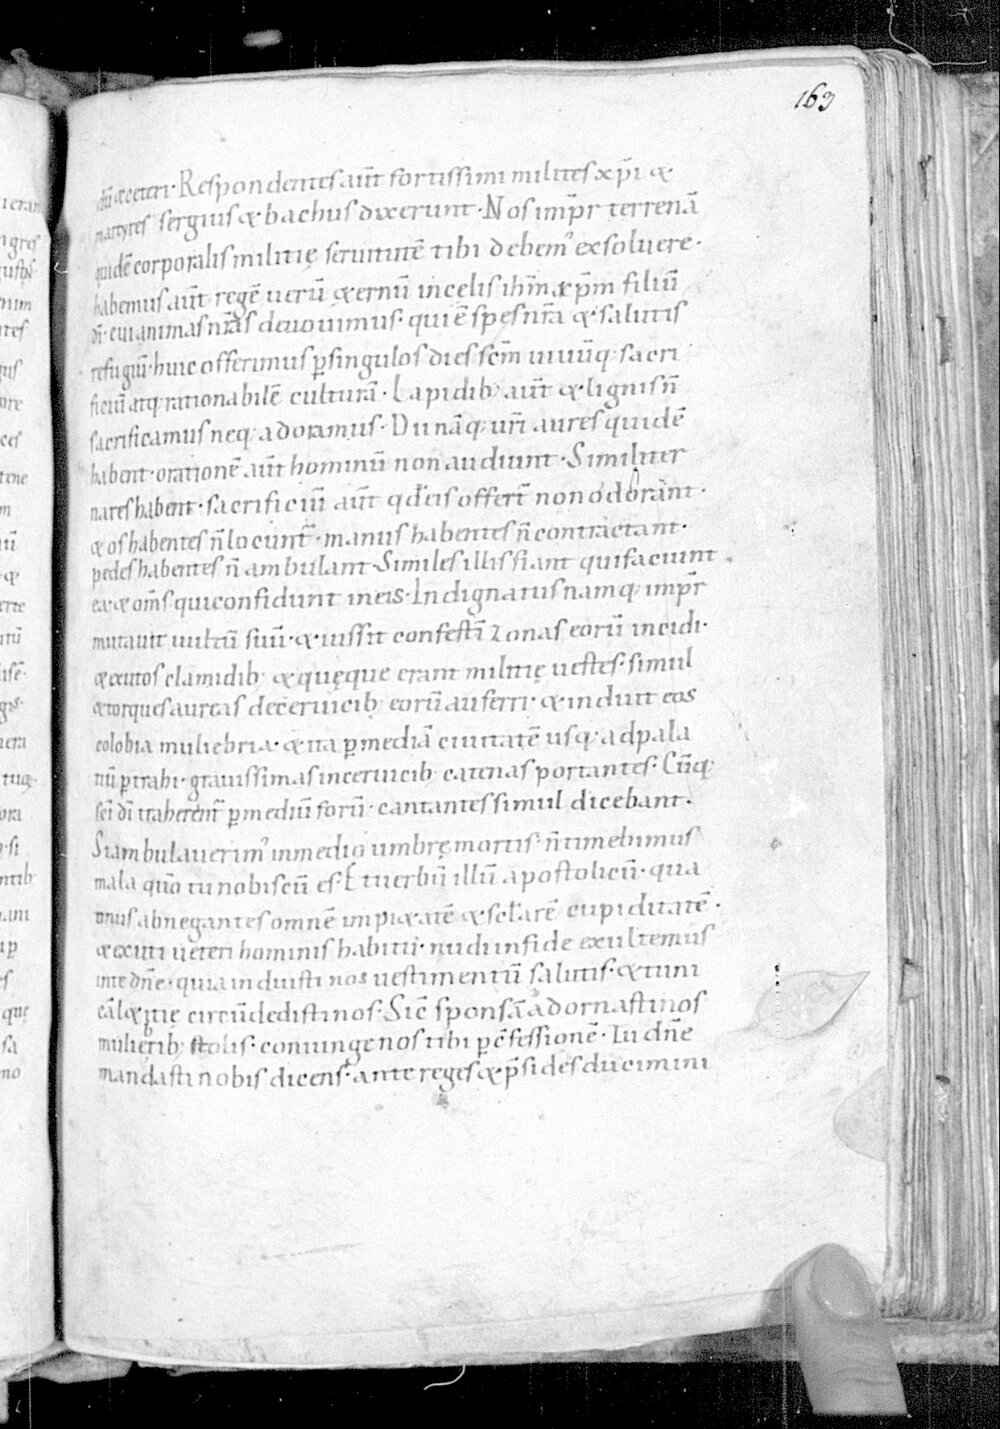 163
dū & ceteri · Respondentes aūt fortissimi milites xp̄i &
martyres sergius & bachus dixerunt · Nos imp̄r terrenā
quidē corporalis militię seruitutē tibi debemꝰ exsoluere ·
habemus aūt regē uerū & ęternū in celis ihm̄ xp̄m filiū
dī · cui animas nr̄as deuouimus · qui ē spes nr̄a & salutis
refugiū · huic offerimus ꝑ singulos dies scm̄ uiuūq; sacri
ficiū atq; rationabilē culturā · Lapidib; aūt & lignis n̄
sacrificamus neq; adoramus · Dii nāq; ur̄i aures quidē
habent · orationē aūt hominū non audiunt · Similiter
nares habent · sacrificiū aūt qd̄ eis offert̄ non odorant ·
& os habentes n̄ locunt̄ · manus habentes n̄ contractant ·
pedes habentes n̄ ambulant · Similes illis fiant qui faciunt
ea · & om̄s qui confidunt in eis · Indignatus namq; imp̄r
mutauit uultū suū · & iussit confestī zonas eorū incidi ·
& exutos clamidib; & quęque erant militię uestes · simul
& torques aureas de ceruicib; eorū auferri · & induit eos
colobia muliebria · & ita ꝑ mediā ciuitatē usq; ad pala
tiū ꝑtrahi · grauissimas in ceruicib; catenas portantes · Cūq;
sc̄i dī traherent̄ ꝑ mediū forū · cantantes simul dicebant ·
Si ambulauerimꝰ in medio umbrę mortis · n̄ timebimus
mala qūo tu nobiscū es · & uerbū illū apostolicū · qua
mus abnegantes omnē impi&atē & sc̄larē cupiditatē ·
& exuti ueteri hominis habitū · nudi in fide exultemus
in te dn̄e · quia induisti nos uestimentū salutis · & tuni
ca l&itię circūdedisti nos · Sic̄ sponsā adornasti nos
muliebrib; stolis · coniunge nos tibi ꝑ c̄fessionē · Tu dn̄e
mandasti nobis dicens · ante reges & p̄sides ducimini